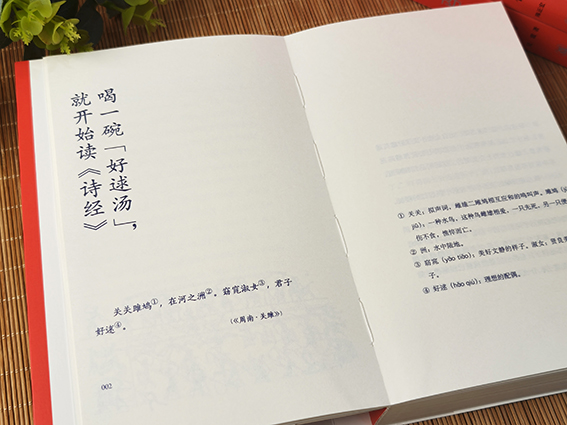 喝一碗「好逑汤」，
就开始读《诗经》
关关雎鸠①，在河之洲②。窈窕淑女③，君子
好逑④。
（《周南·关雎》）
002
① 关关：拟声词，雌雄二雎鸠相互应和的鸣叫声。雎鸠（
jū）：一种水鸟，这种鸟雌雄相爱，一只先死，另一只
伤不食，憔悴而亡。
② 洲：水中陆地。
③ 窈窕（yǎo tiǎo）：美好文静的样子。淑女：贤良美
子。
④ 好逑（hǎo qiú）：理想的配偶。